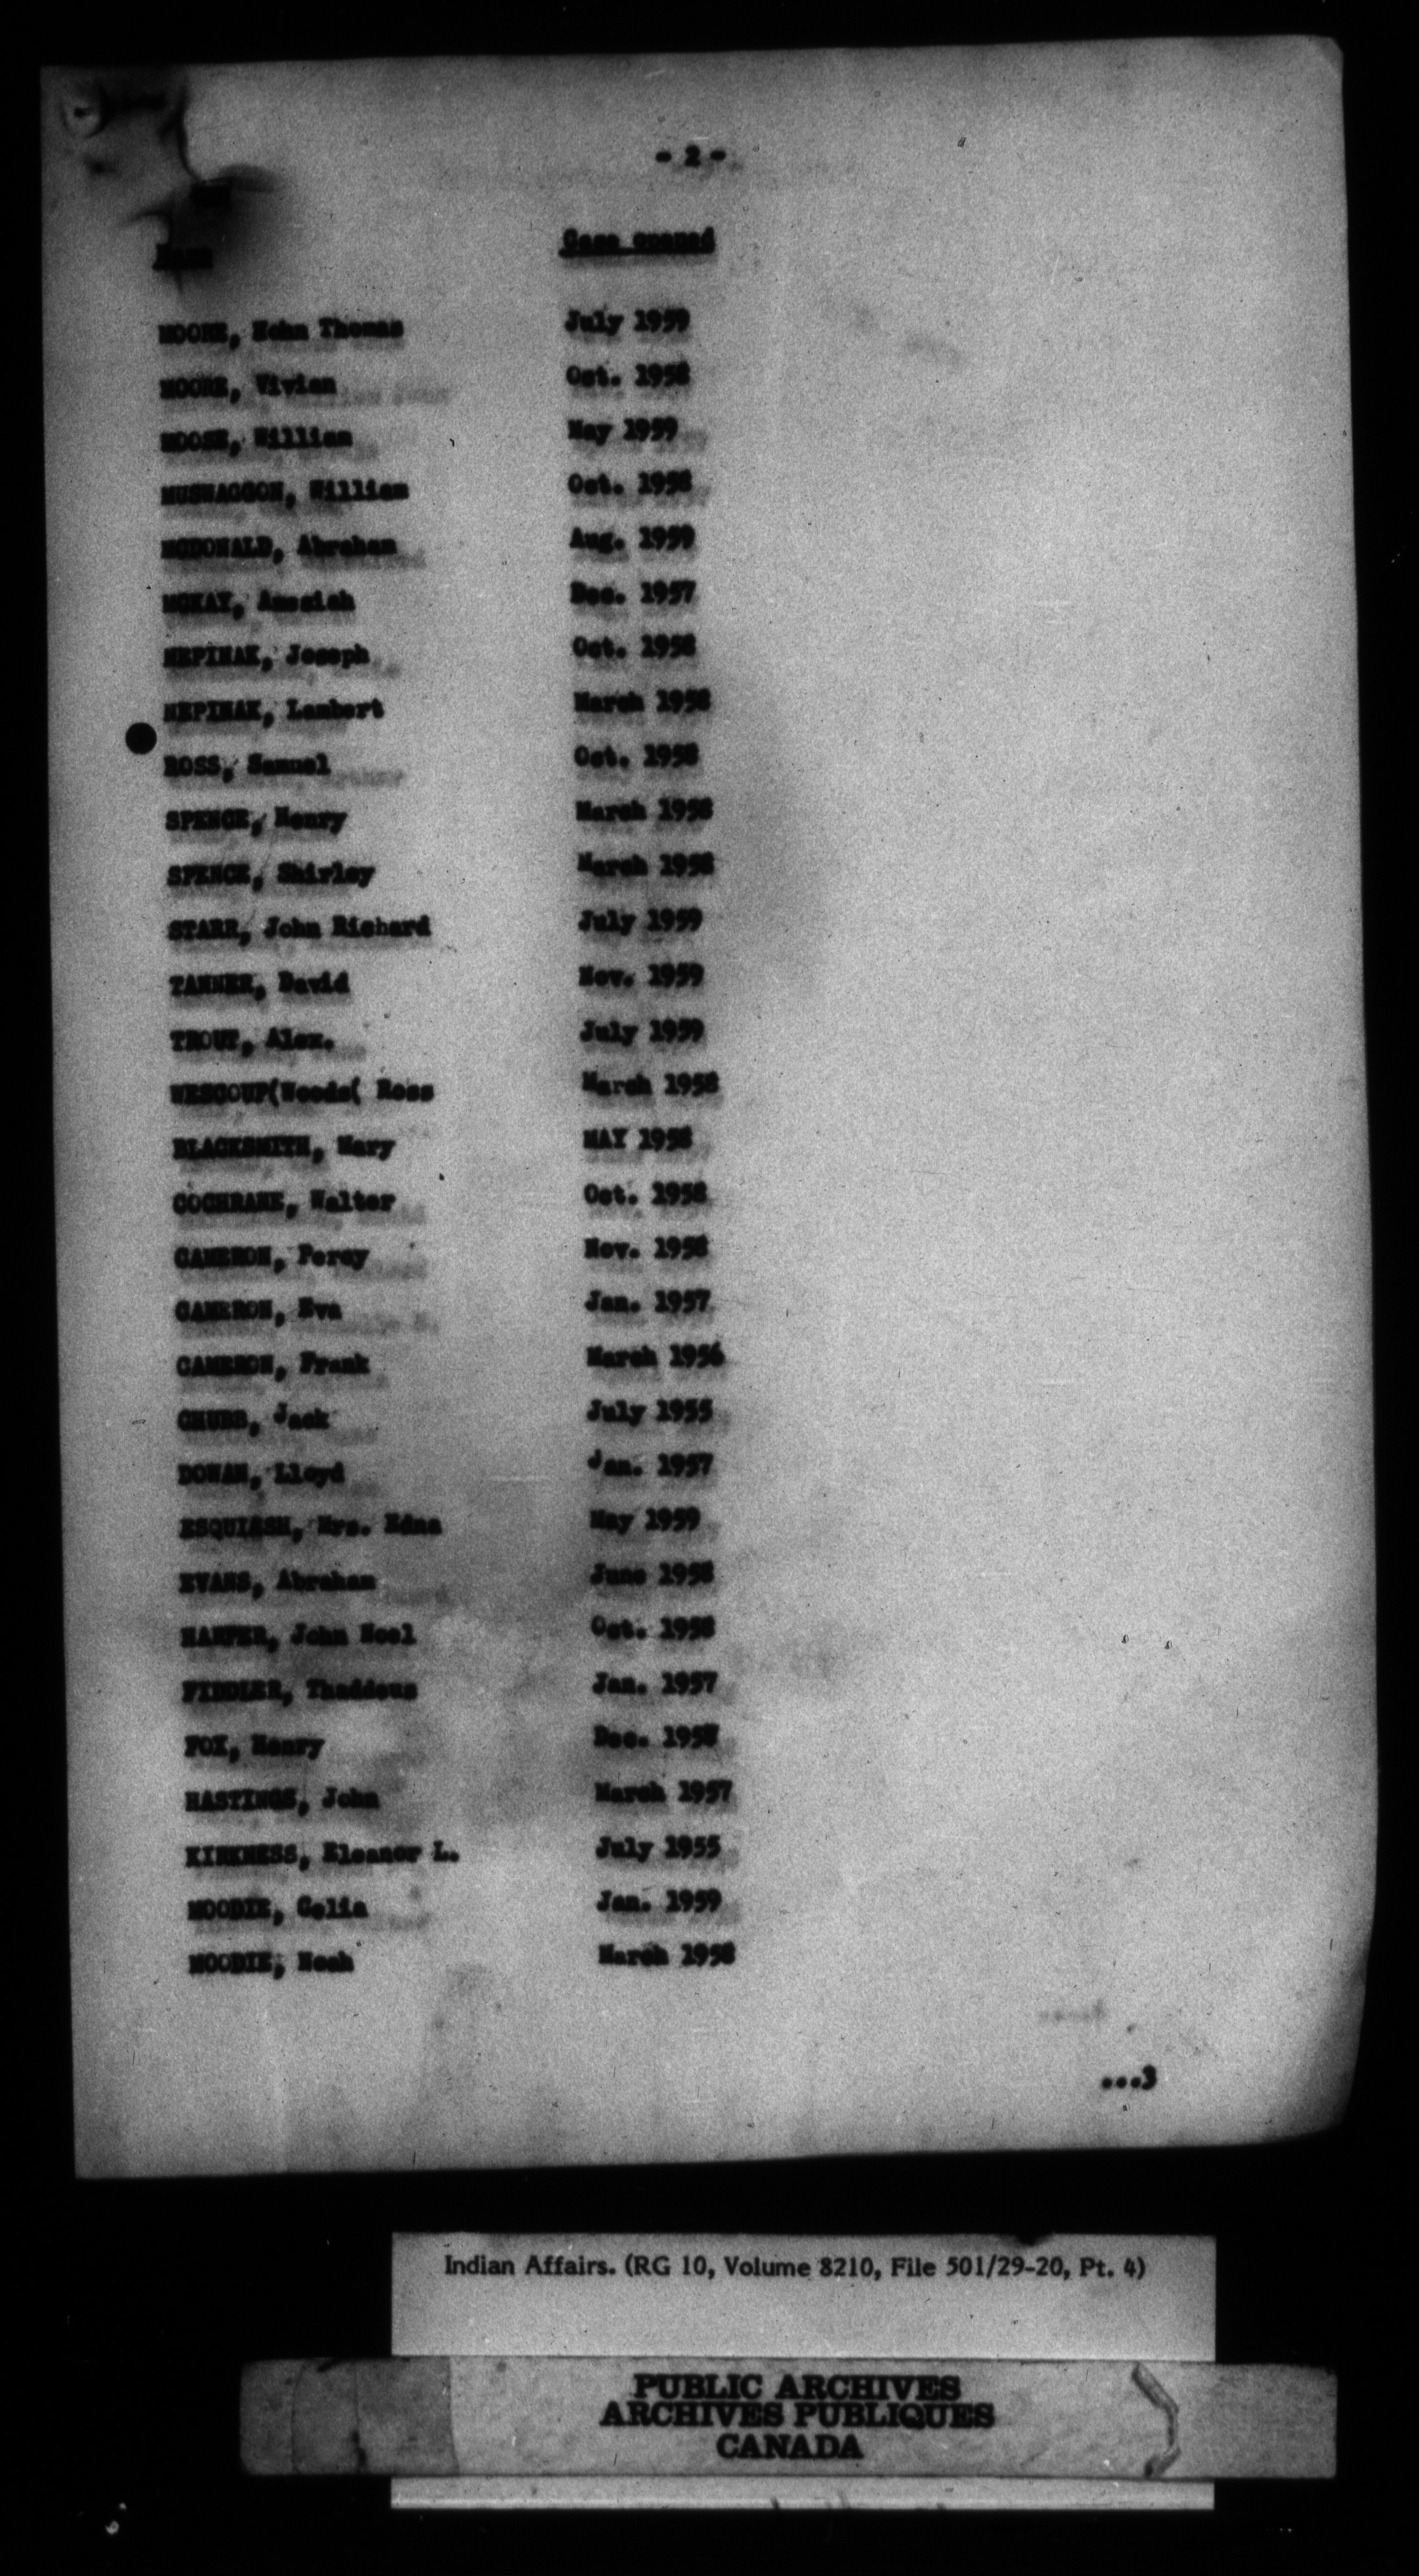 - 2 -
Name Case opened
MOORE, Hohn Thomas July 1959
MOORE, Vivian Oct. 1958
MOOSE, William May 1959
MUSWAGGON, William Oct. 1958
MCDONALD, Abraham Aug. 1959
MCKAY, Amaziah Dec. 1957
NEPINAK, Joseph Oct. 1958
NEPINAK, Lambert March 1958
ROSS, Samuel Oct. 1958
SPENCE, Henry March 1958
SPENCE, Shirley March 1958
STARR, John Richard July 1959
TANNER, David Nov. 1959
TROUT, Alex. July 1959
WESCOUP(Woods( Ross March 1958
BLACKSMITH, Mary MAY 1958
COCHRANE, Walter Oct. 1958
CAMERON, Percy Nov. 1958
CAMERON, Eva Jan. 1957
CAMERON, Frank March 1956
CHUBB, Jack July 1955
DOWAN, Lloyd Jan. 1957
ESQUIASH, Mrs. Edna May 1959
EVANS, Abraham June 1958
HARPER, John Noel Oct. 1958
FIDDLER, Thaddeus Jan. 1957
FOX, Henry Dec.
HASTINGS, John March 1957
KIRKNESS, Eleanor L. July 1955
MOODIE, Celia Jan. 1959
MOODIE, Noah March 1958
...3
Indian Affairs. (RG 10, Volume 8210, File 501/29-20, Pt. 4)
PUBLIC ARCHIVES
ARCHIVES PUBLIQUES
CANADA